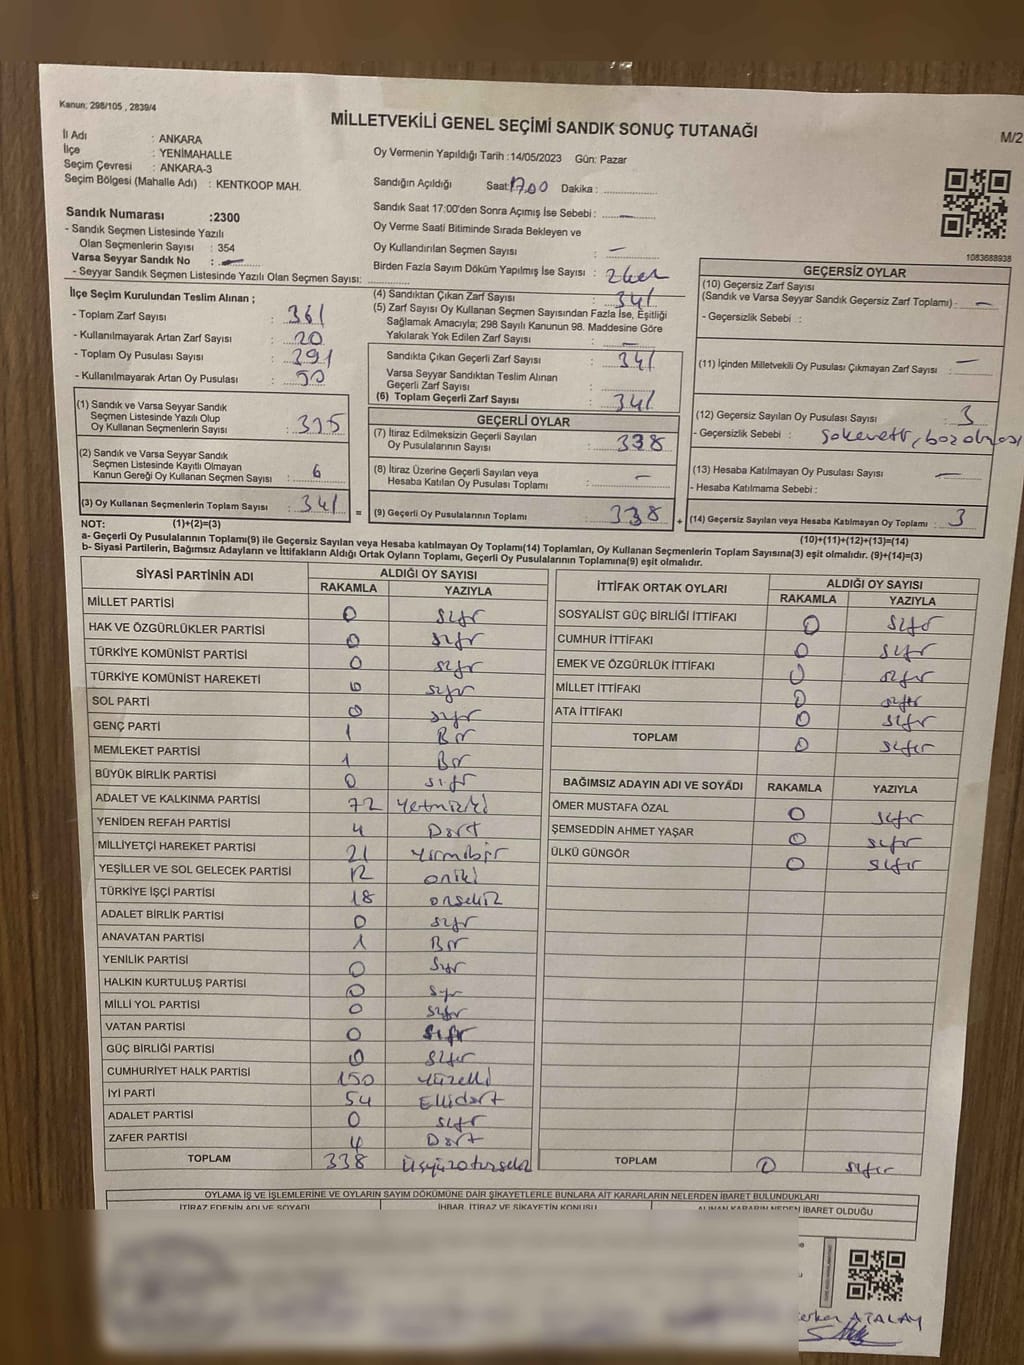 Kanun; 298/105 , 2839/4
MİLLETVEKİLİ GENEL SEÇİMİ SANDIK SONUÇ TUTANAĞI
M/2
İl Adı : ANKARA
İlçe : YENİMAHALLE
Seçim Çevresi : ANKARA-3
Seçim Bölgesi (Mahalle Adı) : KENTKOOP MAH.
Sandık Numarası :2300
- Sandık Seçmen Listesinde Yazılı
Olan Seçmenlerin Sayısı : 354
Varsa Seyyar Sandık No : —
- Seyyar Sandık Seçmen Listesinde Yazılı Olan Seçmen Sayısı:
Oy Vermenin Yapıldığı Tarih :14/05/2023 Gün: Pazar
Sandığın Açıldığı Saat: 17.00 Dakika :
Sandık Saat 17:00'den Sonra Açımış İse Sebebi : —
Oy Verme Saati Bitiminde Sırada Bekleyen ve
Oy Kullandırılan Seçmen Sayısı : —
Birden Fazla Sayım Döküm Yapılmış İse Sayısı : 2 kez
1083688938
İlçe Seçim Kurulundan Teslim Alınan ;
- Toplam Zarf Sayısı : 361
- Kullanılmayarak Artan Zarf Sayısı : 20
- Toplam Oy Pusulası Sayısı : 391
- Kullanılmayarak Artan Oy Pusulası : 50
(1) Sandık ve Varsa Seyyar Sandık
Seçmen Listesinde Yazılı Olup
Oy Kullanan Seçmenlerin Sayısı : 335
(2) Sandık ve Varsa Seyyar Sandık
Seçmen Listesinde Kayıtlı Olmayan
Kanun Gereği Oy Kullanan Seçmen Sayısı : 6
(3) Oy Kullanan Seçmenlerin Toplam Sayısı : 341
(4) Sandıktan Çıkan Zarf Sayısı : 341
(5) Zarf Sayısı Oy Kullanan Seçmen Sayısından Fazla İse, Eşitliği
Sağlamak Amacıyla; 298 Sayılı Kanunun 98. Maddesine Göre
Yakılarak Yok Edilen Zarf Sayısı : —
Sandıkta Çıkan Geçerli Zarf Sayısı : 341
Varsa Seyyar Sandıktan Teslim Alınan
Geçerli Zarf Sayısı :
(6) Toplam Geçerli Zarf Sayısı : 341
GEÇERLİ OYLAR
(7) İtiraz Edilmeksizin Geçerli Sayılan
Oy Pusulalarının Sayısı : 338
(8) İtiraz Üzerine Geçerli Sayılan veya
Hesaba Katılan Oy Pusulası Toplamı : —
= (9) Geçerli Oy Pusulalarının Toplamı : 338
GEÇERSİZ OYLAR
(10) Geçersiz Zarf Sayısı
(Sandık ve Varsa Seyyar Sandık Geçersiz Zarf Toplamı) : —
- Geçersizlik Sebebi :
(11) İçinden Milletvekili Oy Pusulası Çıkmayan Zarf Sayısı : —
(12) Geçersiz Sayılan Oy Pusulası Sayısı : 3
- Geçersizlik Sebebi :
(13) Hesaba Katılmayan Oy Pusulası Sayısı : —
- Hesaba Katılmama Sebebi :
+ (14) Geçersiz Sayılan veya Hesaba Katılmayan Oy Toplamı : 3
NOT: (1)+(2)=(3)
(10)+(11)+(12)+(13)=(14)
a- Geçerli Oy Pusulalarının Toplamı(9) ile Geçersiz Sayılan veya Hesaba katılmayan Oy Toplamı(14) Toplamları, Oy Kullanan Seçmenlerin Toplam Sayısına(3) eşit olmalıdır. (9)+(14)=(3)
b- Siyasi Partilerin, Bağımsız Adayların ve İttifakların Aldığı Ortak Oyların Toplamı, Geçerli Oy Pusulalarının Toplamına(9) eşit olmalıdır.
SİYASİ PARTİNİN ADI ALDIĞI OY SAYISI
RAKAMLA YAZIYLA
MİLLET PARTİSİ 0 sıfır
HAK VE ÖZGÜRLÜKLER PARTİSİ 0 sıfır
TÜRKİYE KOMÜNİST PARTİSİ 0 sıfır
TÜRKİYE KOMÜNİST HAREKETİ 0 sıfır
SOL PARTİ 0 sıfır
GENÇ PARTİ 1 Bir
MEMLEKET PARTİSİ 1 Bir
BÜYÜK BİRLİK PARTİSİ 0 sıfır
ADALET VE KALKINMA PARTİSİ 72 Yetmişiki
YENİDEN REFAH PARTİSİ 4 Dört
MİLLİYETÇİ HAREKET PARTİSİ 21 Yirmibir
YEŞİLLER VE SOL GELECEK PARTİSİ 12 oniki
TÜRKİYE İŞÇİ PARTİSİ 18 onsekiz
ADALET BİRLİK PARTİSİ 0 sıfır
ANAVATAN PARTİSİ 1 Bir
YENİLİK PARTİSİ 0 Sıfır
HALKIN KURTULUŞ PARTİSİ 0 Sıfır
MİLLİ YOL PARTİSİ 0 sıfır
VATAN PARTİSİ 0 sıfır
GÜÇ BİRLİĞİ PARTİSİ 0 sıfır
CUMHURİYET HALK PARTİSİ 150 Yüzelli
İYİ PARTİ 54 Ellidört
ADALET PARTİSİ 0 sıfır
ZAFER PARTİSİ 4 Dört
TOPLAM 338 Üçyüzotuzsekiz
İTTİFAK ORTAK OYLARI ALDIĞI OY SAYISI
RAKAMLA YAZIYLA
SOSYALİST GÜÇ BİRLİĞİ İTTİFAKI 0 sıfır
CUMHUR İTTİFAKI 0 sıfır
EMEK VE ÖZGÜRLÜK İTTİFAKI 0 sıfır
MİLLET İTTİFAKI 0 sıfır
ATA İTTİFAKI 0 sıfır
TOPLAM 0 sıfır
BAĞIMSIZ ADAYIN ADI VE SOYADI RAKAMLA YAZIYLA
ÖMER MUSTAFA ÖZAL 0 sıfır
ŞEMSEDDİN AHMET YAŞAR 0 sıfır
ÜLKÜ GÜNGÖR 0 sıfır
TOPLAM 0 sıfır
OYLAMA İŞ VE İŞLEMLERİNE VE OYLARIN SAYIM DÖKÜMÜNE DAİR ŞİKAYETLERLE BUNLARA AİT KARARLARIN NELERDEN İBARET BULUNDUKLARI
İTİRAZ EDENİN ADI VE SOYADI İHBAR, İTİRAZ VE ŞİKAYETİN KONUSU ALINAN KARARIN NEDEN İBARET OLDUĞU
ATALAY